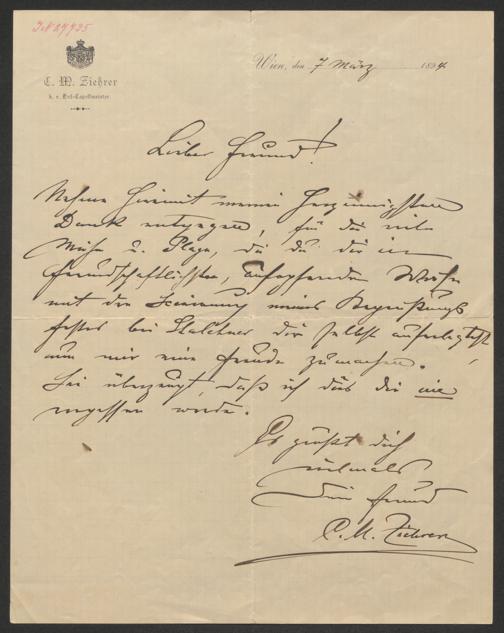 I.N. 27735
C. M. Ziehrer
k. u. k. Hof-Capellmeister
Wien, den 7 März 1894
Lieber Freund!
Nehme hiermit meinen herzinnigsten
Dank entgegen, für die viele
Mühe u. Plage, die du dir in
freundschaftlichster, aufopfernder Weise
mit der meines Begrüßungs
festes bei Stalehner dir selbst auferlegtest
um mir eine Freude zu machen.
Sei überzeugt, daß ich das dir nie
vergessen werde.
Es grüßt dich
vielmals
Dein Freund
C. M. Ziehrer